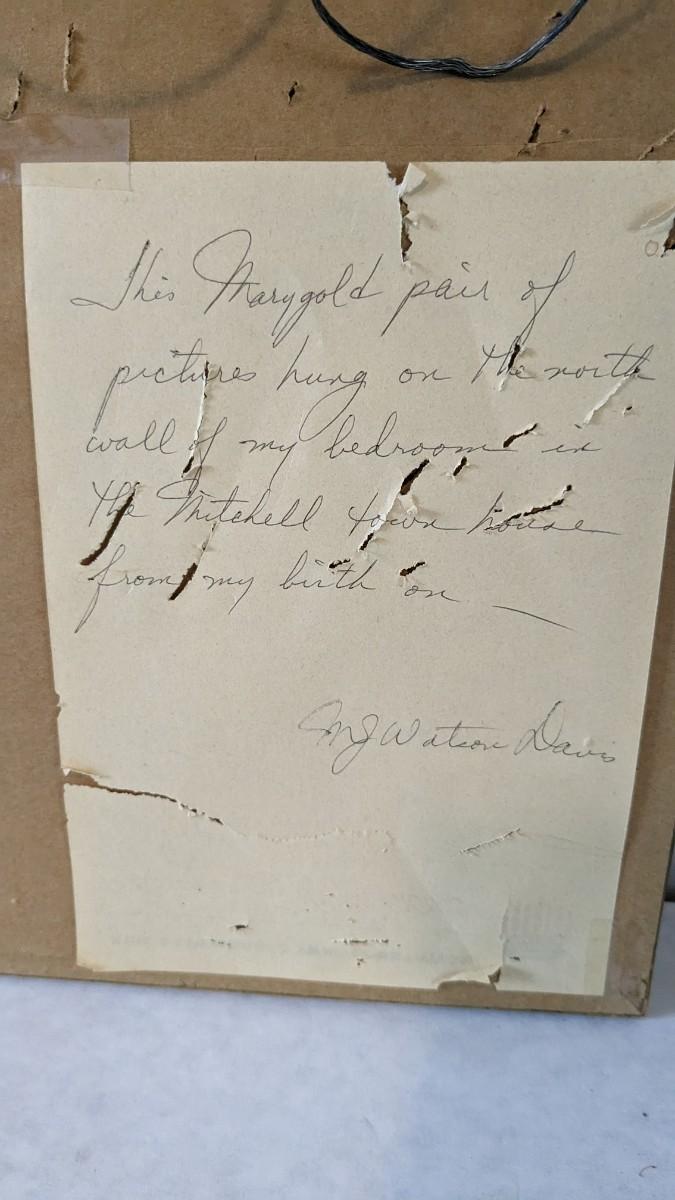 This Marygold pair of
pictures hung on the north
wall of my bedroom in
the Mitchell town house
from my birth on —
MJ Watson Davis